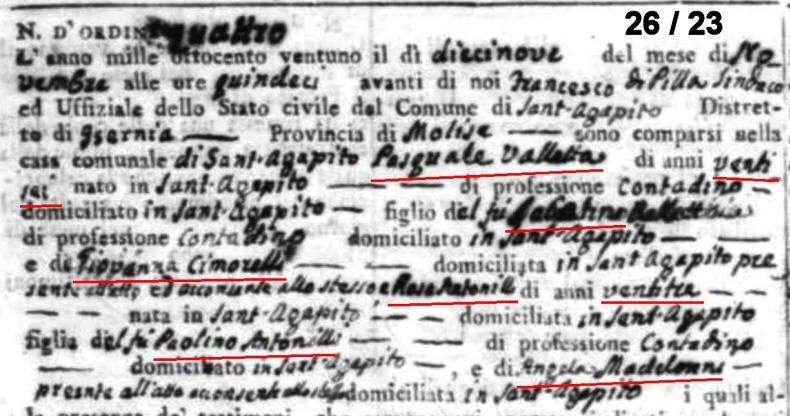 26 / 23
N. D'ORDINE quattro
L'anno mille ottocento ventuno il dì diecinove del mese di No
vembre alle ore quindeci avanti di noi Francesco di Pilla Sindaco
ed Uffiziale dello Stato civile del Comune di Sant-Agapito Distret-
to di Isernia Provincia di Molise sono comparsi nella
casa comunale di Sant-Agapito Pasquale Valletta di anni venti
sei nato in Sant-Agapito di professione Contadino
domiciliato in Sant-Agapito figlio del fu
di professione Contadino domiciliato in Sant-Agapito
e di Giovanna Cimorelli domiciliata in Sant Agapito pre
sente all'atto ed acconsente allo stesso e Rosa Antonilli di anni ventitre
nata in Sant-Agapito domiciliata in Sant-Agapito
figlia del fu Paolino Antonilli di professione Contadino
domiciliato in Sant-Agapito, e di Angela Madelonni
presente all'atto acconsente allo domiciliata in Sant-Agapito i quali al-
la presenza de' testimoni, che